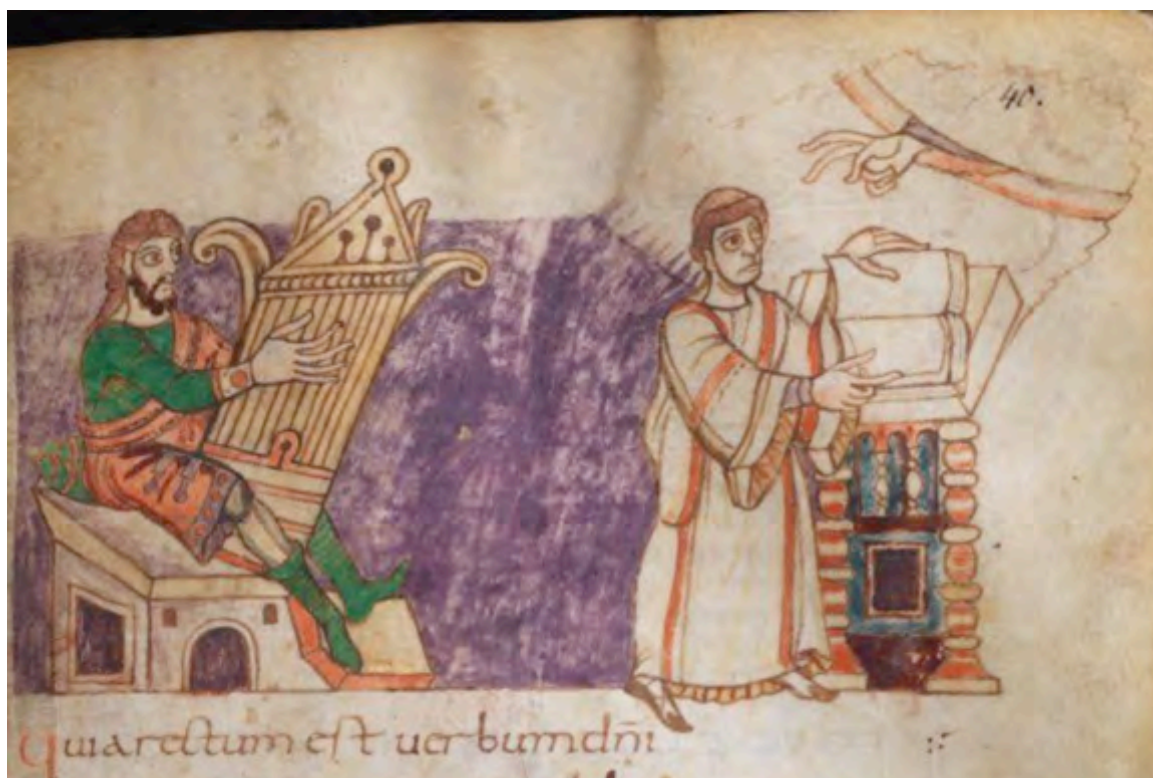 40.
quia rectum est uerbum dn̄i